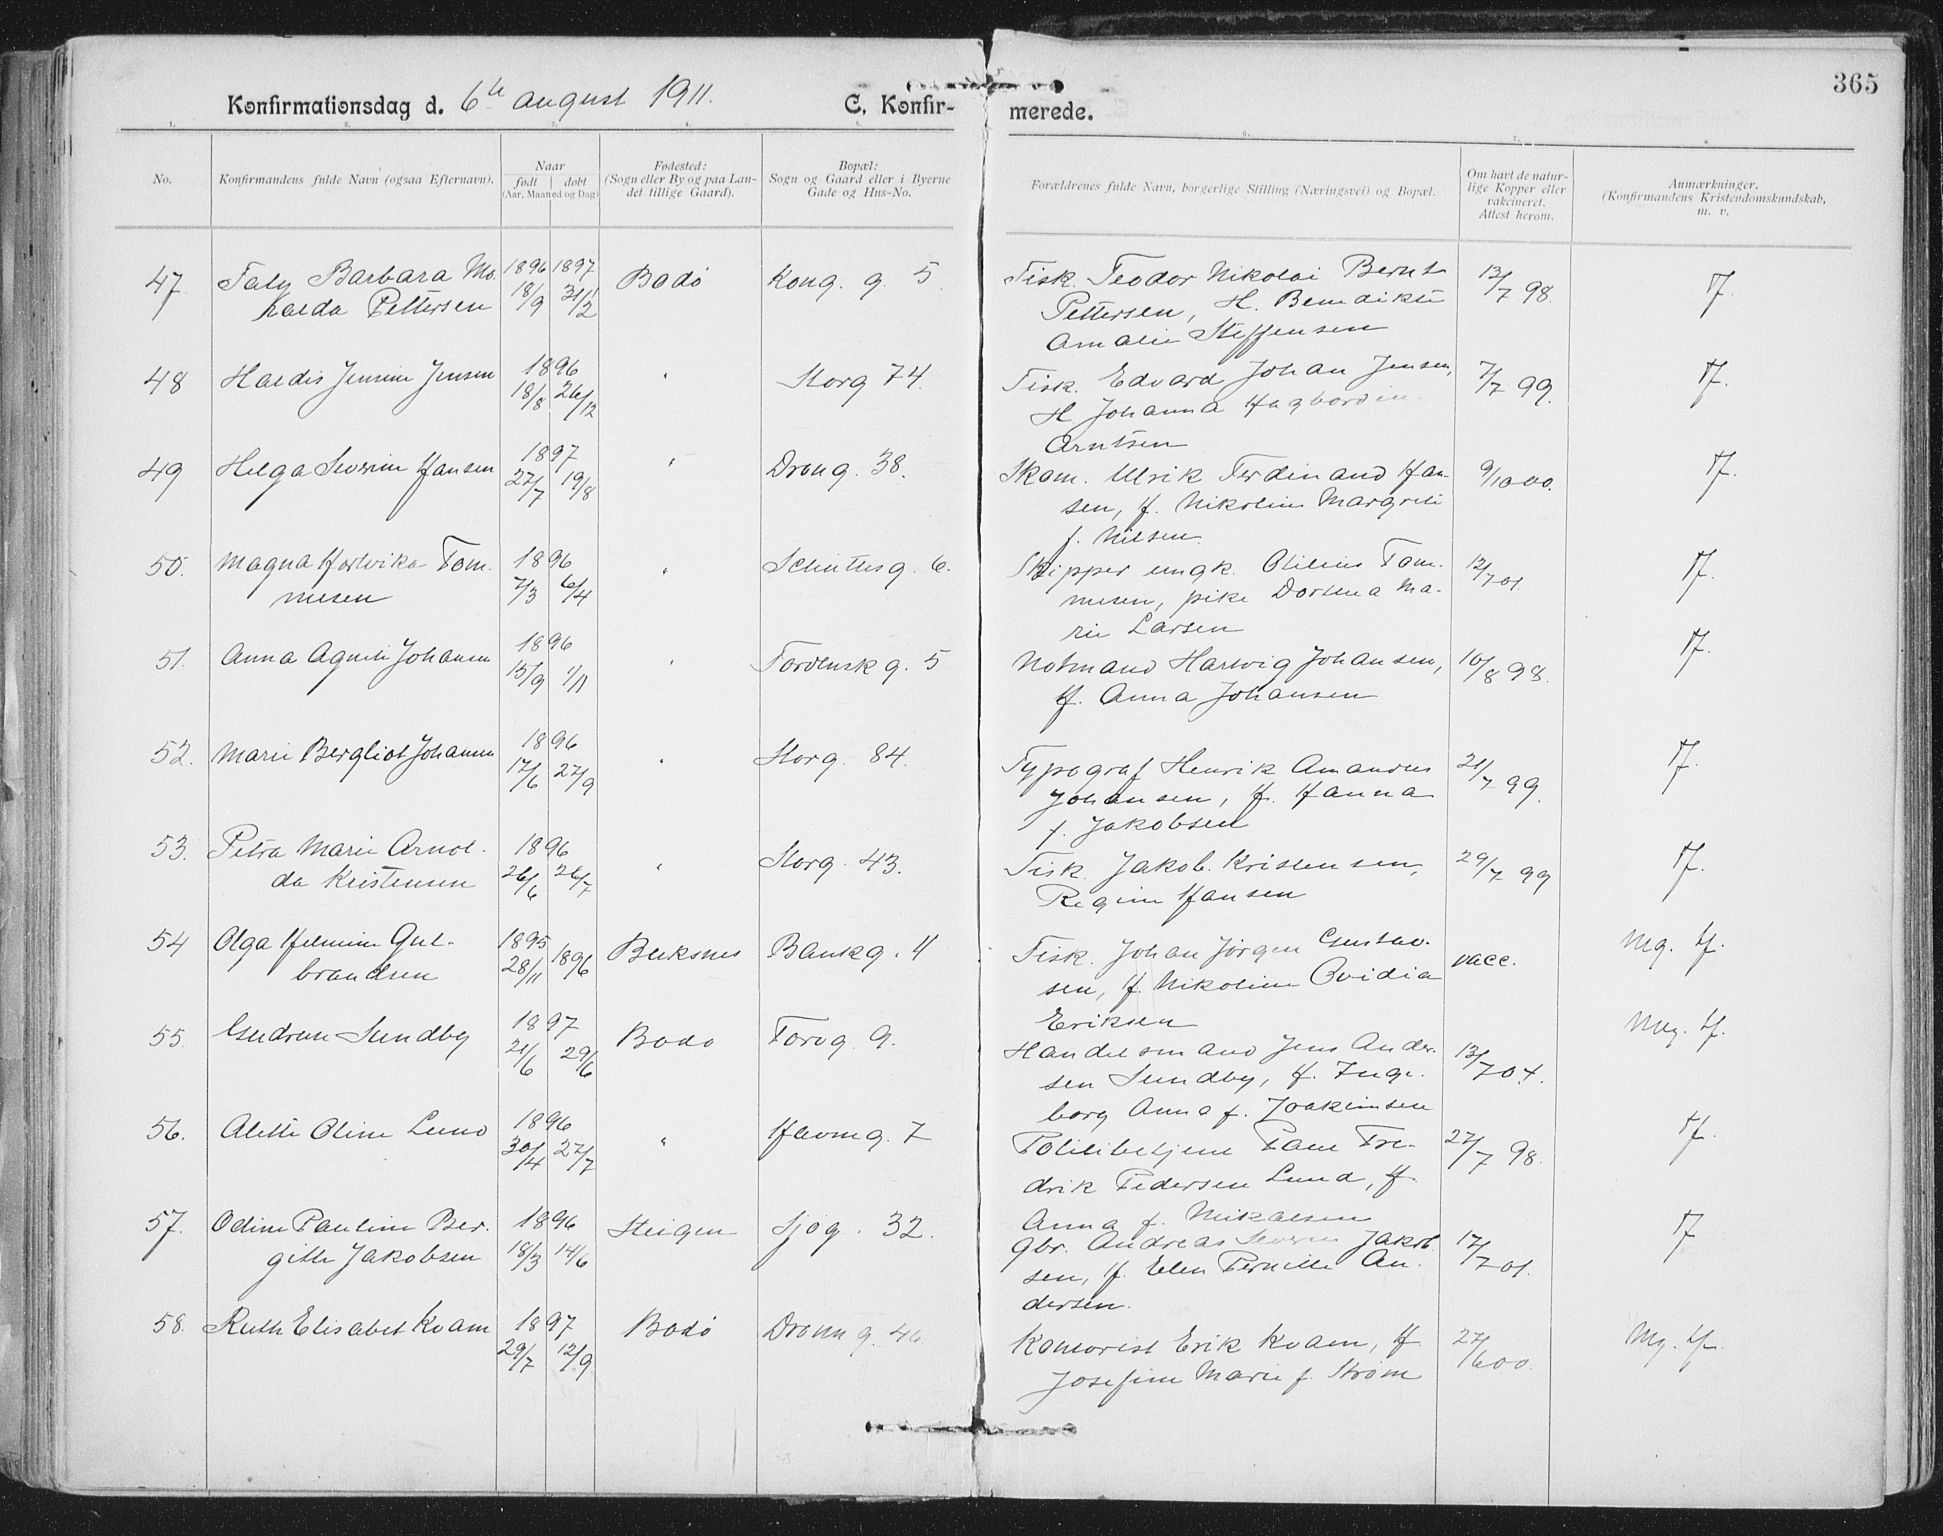 365
Konfirmationsdag d. 6te august 1911.
C. Konfirmerede.
1. 2. 3. 4. 5. 6. 7. 8.
No.
Konfirmandens fulde Navn (ogsaa Efternavn).
Naar
født døbt
(Aar, Maaned og Dag)
Fødested:
(Sogn eller By og paa Lan-
det tillige Gaard).
Bopæl:
Sogn og Gaard eller i Byerne
Gade og Hus-No.
Forældrenes fulde Navn, borgerlige Stilling (Næringsvei) og Bopæl.
Om havt de natur-
lige Kopper eller
vakcineret.
Attest herom.
Anmærkninger.
(Konfirmandens Kristendomskundskab,
m. v.
47. Barbara 1896 1897 Bodø Kong. g. 5. Fisk. Teodor Nikolai Bernt 13/7 98.
Pettersen 18/9 31/12 Pettersen, H. Benedikte
Amalie Steffensen
48 Haldis Jensine Jensen 1896 " Storg 74. Fisk. Edvard Johan Jensen, 7/7 99.
18/8 26/12 H. Johanna Hagbardine
Arntsen
49 Helga Severine Hansen 1897 " Dron g. 38. Skom. Ulrik Ferdinand Han- 9/10 00.
27/7 19/8 sen, H. Nikoline Margrete
f. Nilsen
50. Magna Hartvika Tom- 1896 " g. 6. Skipper ungk. Otilius Tom- 12/7 01.
mesen 7/3 6/4 mesen, pike Dortena Ma-
rie Larsen
51. Anna Agnete Johansen 1896 " Tordensk g. 5 Notmand Hartvig Johansen, 16/8 98.
15/9 1/11 H. Anna Johansen
52. Marie Bergliot Johansen 1896 " Storg. 84. Typograf Henrik Amandus 21/7 99.
17/6 27/9 Johansen, H. Hanna
f. Jakobsen
53. Petra Marie Arnol- 1896 " Storg. 43. Fisk. Jakob Kristensen, 29/7 99
da Kristensen 26/6 26/7 Regine Hansen
54 Olga Helmine Gul- 1895 1896 Buksnes Bankg. 4 Fisk. Johan Jørgen Gustav- vacc. Mg. tf.
brandsen 28/11 sen, H. Nikoline Ovidia
Eriksen
55. Gudrun Sundby 1897 Bodø Torvg. 9. Handelsmand Jens Ander- 13/7 04. Mg. tf.
21/6 29/6 sen Sundby, H. Inge-
borg Anna f. Joakimsen
56. Alette Oline Lund 1896 " Havneg. 7 Politibetjent Fre- 27/7 98.
30/4 27/7 drik Pedersen Lund, H.
Anna f. Mikalsen
57. Odine Pauline Ber- 1896 Steigen Sjøg. 32. Gbr. Andreas Severin Jakob- 17/7 01.
gitte Jakobsen 18/3 14/6 sen, H. Elen Pernille An-
dersen.
58. Ruth Elisabet Kvam 1897 Bodø Dronn g. 46 Kontorist Erik Kvam, H. 27/6 00. Mg. tf.
29/7 12/9 Josefine Marie f. Strøm